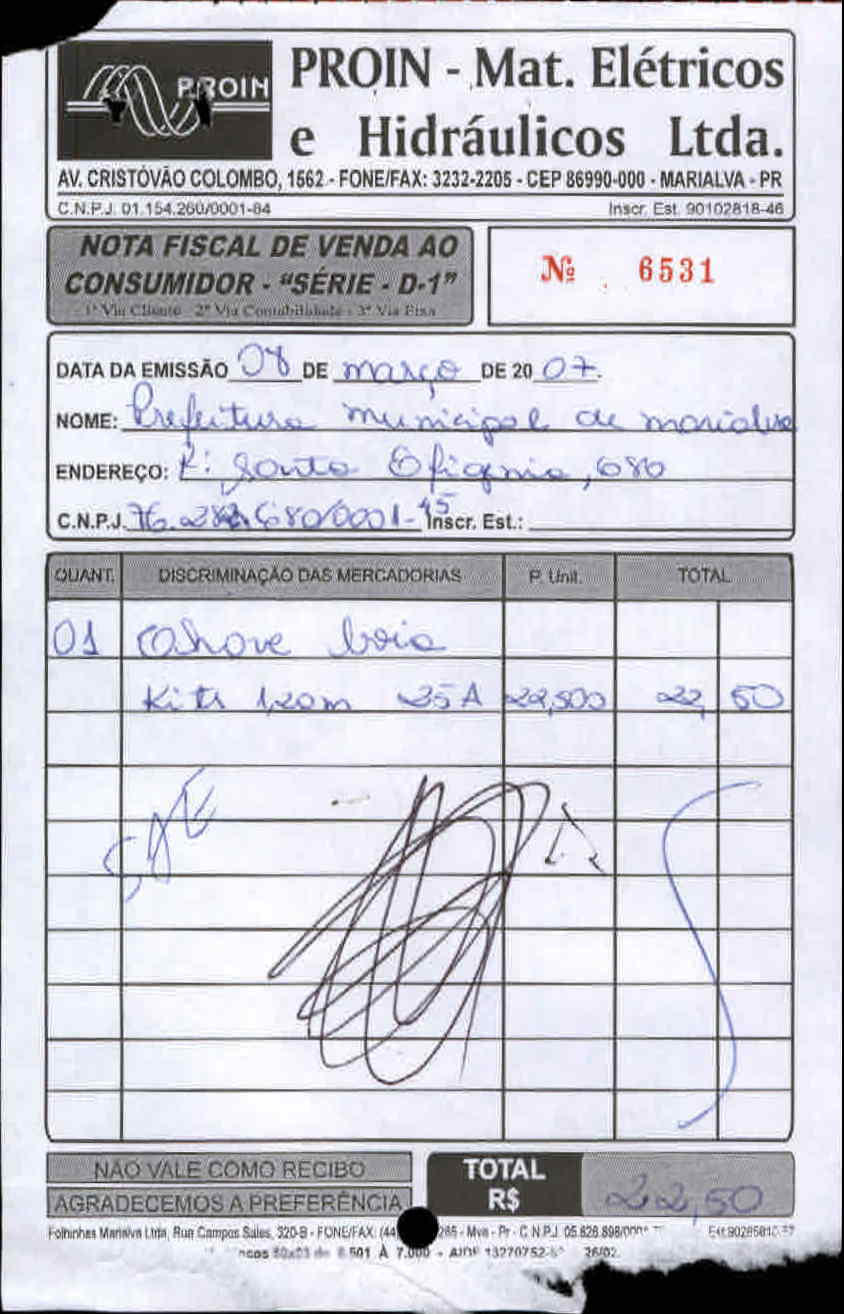 PROIN
PROIN - Mat. Elétricos
e Hidráulicos Ltda.
AV. CRISTÓVÃO COLOMBO, 1562 - FONE/FAX: 3232-2205 - CEP 86990-000 - MARIALVA - PR
C.N.P.J. 01.154.260/0001-84 Inscr. Est. 90102818-46
NOTA FISCAL DE VENDA AO
CONSUMIDOR - "SÉRIE - D-1"
1ª Via Cliente - 2ª Via Contabilidade - 3ª Via Fixa
Nº 6531
DATA DA EMISSÃO 08 DE março DE 20 07.
NOME: Prefeitura municipal de marialva
ENDEREÇO: R: Santa Efigenia, 680
C.N.P.J. 76.282.680/0001-45 Inscr. Est.:
QUANT. DISCRIMINAÇÃO DAS MERCADORIAS P. Unit. TOTAL
01 chave boia
1,20m 25A 22,500 22,50
NÃO VALE COMO RECIBO
AGRADECEMOS A PREFERÊNCIA
TOTAL
R$ 22,50
Folhinhas Marialva Ltda, Rua Campos Sales, 320-B - FONE/FAX: (44 265 - Mva - Pr - C.N.P.J. 05.828.898/000
50x03 de 6.501 À 7.000 - AIDF 13270752